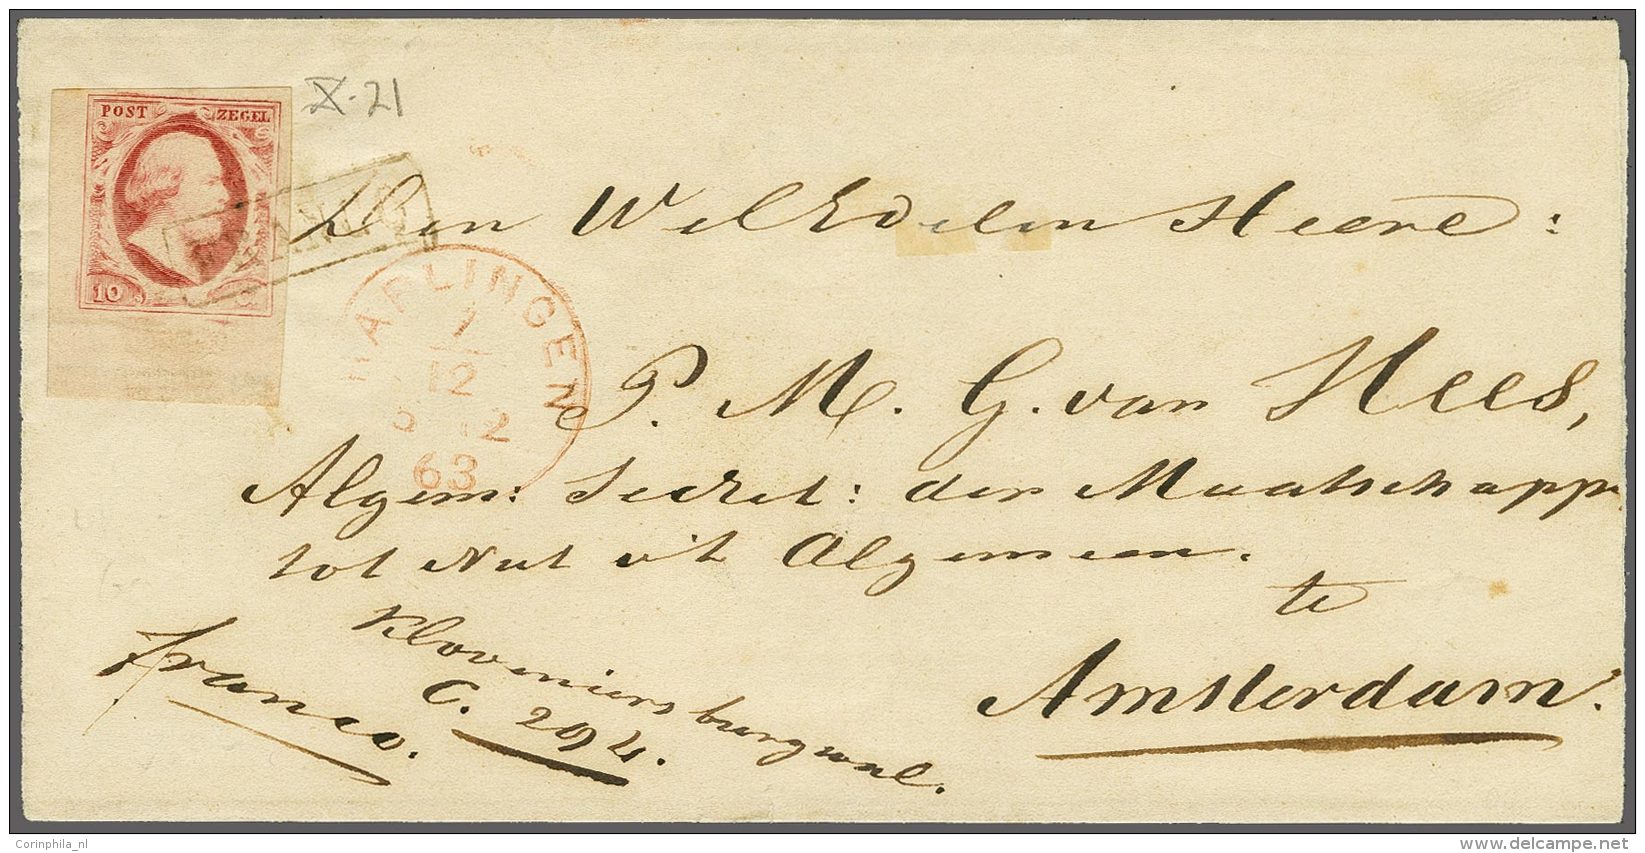 POST ZEGEL
10
X·21
FRANCO
Den WelEdelen Heere:
HARLINGEN
1
12
63
P. M. G. van Hees,
Algem: Secret: der Maatschapp
tot Nut v't Algemeen.
te
Amsterdam.
Kloveniersburgwal.
C. 294.
franco.
Corinphila_nl
delcampe.net